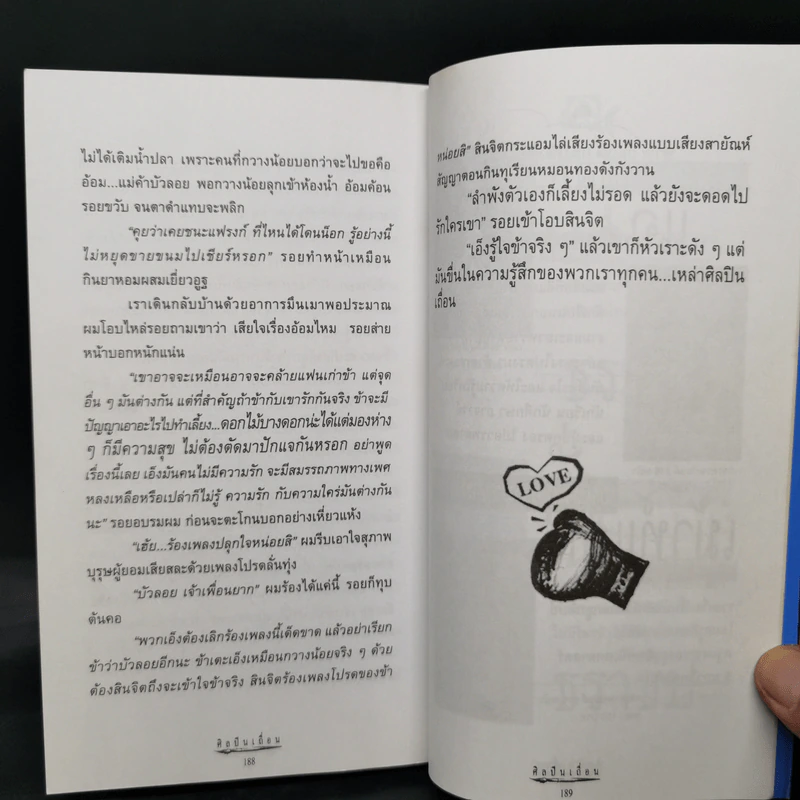 ไม่ได้เติมน้ำปลา เพราะคนที่กวางน้อยบอกว่าจะไปขอคือ
อ้อม...แม่ค้าบัวลอย พอกวางน้อยลุกเข้าห้องน้ำ อ้อมค้อน
รอยขวับ จนตาดำแทบจะพลิก
“คุยว่าเคยชนะแฟรงก์ ที่ไหนได้โดนน็อก รู้อย่างนี้
ไม่หยุดขายขนมไปเชียร์หรอก” รอยทำหน้าเหมือน
กินยาหอมผสมเยี่ยวอูฐ
เราเดินกลับบ้านด้วยอาการมึนเมาพอประมาณ
ผมโอบไหล่รอยถามเขาว่า เสียใจเรื่องอ้อมไหม รอยส่าย
หน้าบอกหนักแน่น
“เขาอาจจะเหมือนอาจจะคล้ายแฟนเก่าข้า แต่จุด
อื่น ๆ มันต่างกัน แต่ที่สำคัญถ้าข้ากับเขารักกันจริง ข้าจะมี
ปัญญาเอาอะไรไปทำเลี้ยง...ดอกไม้บางดอกน่ะได้แต่มองห่าง
ๆ ก็มีความสุข ไม่ต้องตัดมาปักแจกันหรอก อย่าพูด
เรื่องนี้เลย เอ็งมันคนไม่มีความรัก จะมีสมรรถภาพทางเพศ
หลงเหลือหรือเปล่าก็ไม่รู้ ความรัก กับความใคร่มันต่างกัน
นะ” รอยอบรมผม ก่อนจะตะโกนบอกอย่างเหี่ยวแห้ง
“เฮ้ย...ร้องเพลงปลุกใจหน่อยสิ” ผมรีบเอาใจสุภาพ
บุรุษผู้ยอมเสียสละด้วยเพลงโปรดลั่นทุ่ง
“บัวลอย เจ้าเพื่อนยาก” ผมร้องได้แค่นี้ รอยก็ทุบ
ต้นคอ
“พวกเอ็งต้องเลิกร้องเพลงนี้เด็ดขาด แล้วอย่าเรียก
ข้าว่าบัวลอยอีกนะ ข้าเตะเอ็งเหมือนกวางน้อยจริง ๆ ด้วย
ต้องสินจิตถึงจะเข้าใจข้าจริง สินจิตร้องเพลงโปรดของข้า
ศิลปินเถื่อน
188
หน่อยสิ” สินจิตกระแอมไล่เสียงร้องเพลงแบบเสียงสายัณห์
สัญญาตอนกินทุเรียนหมอนทองดังกังวาน
“ลำพังตัวเองก็เลี้ยงไม่รอด แล้วยังจะดอดไป
รักใครเขา” รอยเข้าโอบสินจิต
“เอ็งรู้ใจข้าจริง ๆ” แล้วเขาก็หัวเราะดัง ๆ แต่
มันขื่นในความรู้สึกของพวกเราทุกคน...เหล่าศิลปิน
เถื่อน
LOVE
ศิลปินเถื่อน
189